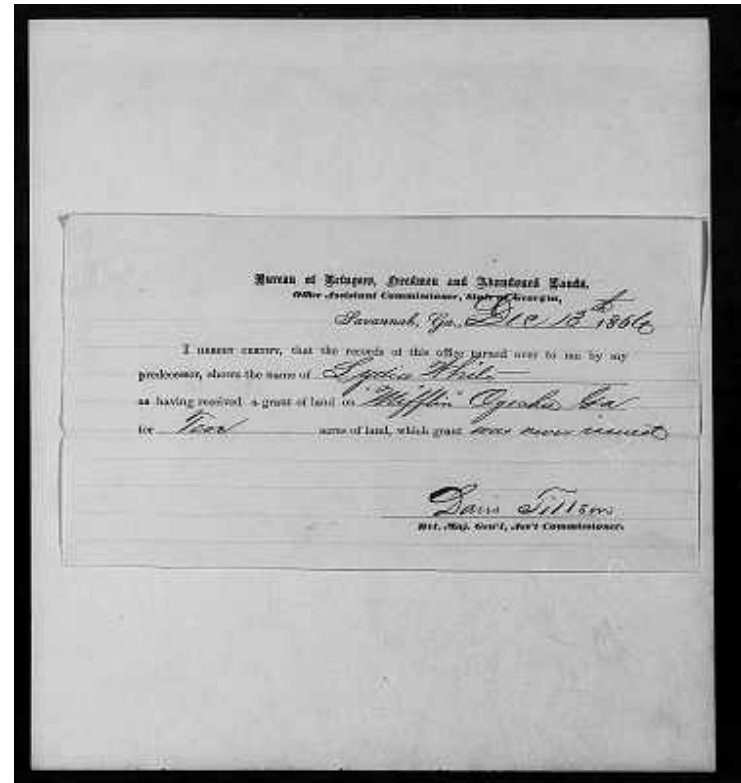 Bureau of Refugees, Freedmen and Abandoned Lands.
Office Assistant Commissioner, State of Georgia,
Savannah, Ga., Dec 13th 1866
I HEREBY CERTIFY, that the records of this office turned over to me by my
predecessor, shows the name of Lydia White
as having received a grant of land on "Mifflin" Ogeechee Ga
for Four acres of land, which grant was never issued
Davis Tillson
Bvt. Maj. Gen'l, Ass't Commissioner.